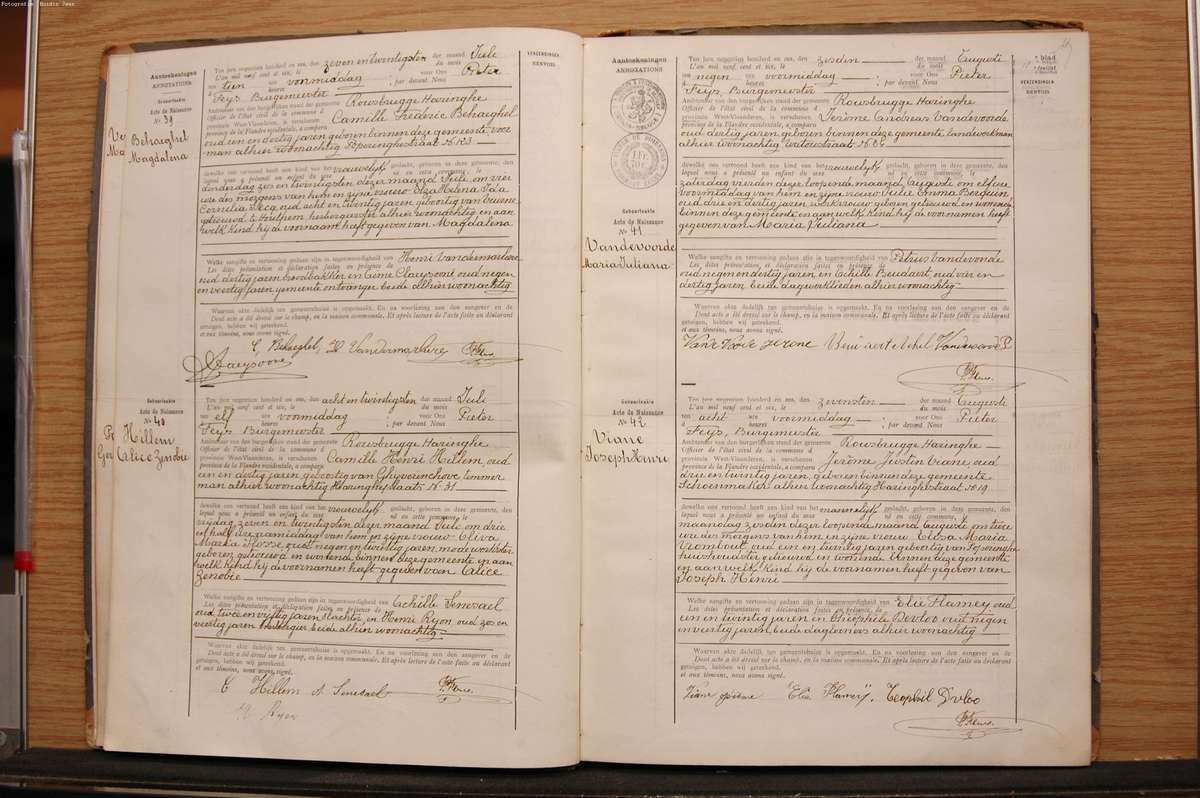 Fotografie: Houdin Jean
Aanteekeningen
ANNOTATIONS
Geboorteakte
Acte de Naissance
No 39
Behaeghel
Magdalena
VERZENDINGEN
RENVOIS
Ten jare negentien honderd en zes, den zeven en twintigsten der maand Juli
L'an mil neuf cent et six, le du mois
ten tien ure voormiddag voor Ons Pieter
à heures ; par devant Nous
Feys Burgemeester
Ambtenaar van den burgerlijken stand der gemeente Rousbrugge Haringhe
Officier de l'état civil de la commune d
provincie West-Vlaanderen, is verschenen Camille Frederic Behaeghel
province de la Flandre occidentale, a comparu
oud een en dertig jaren geboren binnen deze gemeente voer
man alhier woonachtig Poperinghestraat N. 123
dewelke ons vertoond heeft een kind van het vrouwelijk geslacht, geboren in deze gemeente, den
lequel nous a présenté un enfant du sexe né en cette commune, le
donderdag zes en twintigsten dezer maand Juli om vier
ure des morgens van hem en zijne vrouw Elza Helena Ida
Cornelia Deca oud acht en twintig jaren geboortig van Veurne
gehuwd te Houthem herbergierster alhier woonachtig en aan
welk kind hij de voornaam heeft gegeven van Magdalena
Welke aangifte en vertooning gedaan zijn in tegenwoordigheid van Henri Vandermarliere
Les dites présentation et déclaration faites en présence de
oud dertig jaren broodbakker en Aimé Claeysoone oud negen
en veertig jaren gemeente ontvanger beide alhier woonachtig
Waarvan akte dadelijk ten gemeentehuize is opgemaakt. En na voorlezing aan den aangever en de
Dont acte a été dressé sur le champ, en la maison communale. Et après lecture de l'acte faite au déclarant
getuigen, hebben wij geteekend.
et aux témoins, nous avons signé.
C. Behaeghel, H Vandermarliere P. Feys.
Claeysoone
Geboorteakte
Acte de Naissance
No 40
Hillem
Alice Zenobie
Ten jare negentien honderd en zes, den acht en twintigsten der maand Juli
L'an mil neuf cent et six, le du mois
ten elf ure voormiddag voor Ons Pieter
à heures ; par devant Nous
Feys Burgemeester
Ambtenaar van den burgerlijken stand der gemeente Rousbrugge Haringhe
Officier de l'état civil de la commune d
provincie West-Vlaanderen, is verschenen Camille Henri Hillem oud
province de la Flandre occidentale, a comparu
een en dertig jaren geboortig van Ghyverinchove timmer
man alhier woonachtig Haringhestraat N. 31
dewelke ons vertoond heeft een kind van het vrouwelijk geslacht, geboren in deze gemeente, den
lequel nous a présenté un enfant du sexe né en cette commune, le
vrijdag zeven en twintigsten dezer maand Juli om drie
en half ure namiddag van hem en zijne vrouw Oliva
Maria Hosse oud negen en twintig jaren modewerkster
geboren gehuwd en wonend binnen deze gemeente en aan
welk kind hij de voornamen heeft gegeven van Alice
Zenobie
Welke aangifte en vertooning gedaan zijn in tegenwoordigheid van Achille Senesael
Les dites présentation et déclaration faites en présence de
oud twee en vijftig jaren slachter en Henri Ryon oud zes en
veertig jaren herbergier beide alhier woonachtig
Waarvan akte dadelijk ten gemeentehuize is opgemaakt. En na voorlezing aan den aangever en de
Dont acte a été dressé sur le champ, en la maison communale. Et après lecture de l'acte faite au déclarant
getuigen, hebben wij geteekend.
et aux témoins, nous avons signé.
C Hillem A Senesael P. Feys.
H Ryon
Aanteekeningen
ANNOTATIONS
Geboorteakte
Acte de Naissance
No 41
Vandevoorde
Maria Juliana
blad
feuillet
VERZENDINGEN
RENVOIS
Ten jare negentien honderd en zes, den zesden der maand Auguste
L'an mil neuf cent et six, le du mois
ten negen ure voormiddag voor Ons Pieter
à heures ; par devant Nous
Feys Burgemeester
Ambtenaar van den burgerlijken stand der gemeente Rousbrugge Haringhe
Officier de l'état civil de la commune d
provincie West-Vlaanderen, is verschenen Jerôme Andreas Vandevoorde
province de la Flandre occidentale, a comparu
oud dertig jaren, geboren binnen deze gemeente landwerkman
alhier woonachtig
dewelke ons vertoond heeft een kind van het vrouwelijk geslacht, geboren in deze gemeente, den
lequel nous a présenté un enfant du sexe né en cette commune, le
zaterdag vierden dezer loopende maand Auguste om elf ure
voormiddag van hem en zijne vrouw Julie Emma Berquin
oud drie en dertig jaren, werkvrouw geboren gehuwd en wonend
binnen deze gemeente en aan welk kind hij de voornamen heeft
gegeven van Maria Juliana
Welke aangifte en vertooning gedaan zijn in tegenwoordigheid van Petrus Vandevoorde
Les dites présentation et déclaration faites en présence de
oud negen en dertig jaren en Achille Beudaert oud vier en
dertig jaren beide dagwerklieden alhier woonachtig
Waarvan akte dadelijk ten gemeentehuize is opgemaakt. En na voorlezing aan den aangever en de
Dont acte a été dressé sur le champ, en la maison communale. Et après lecture de l'acte faite au déclarant
getuigen, hebben wij geteekend.
et aux témoins, nous avons signé.
Vande Voorde Jerome Vandevoorde P
P. Feys.
Geboorteakte
Acte de Naissance
No 42
Viane
Joseph Henri
Ten jare negentien honderd en zes, den zevensten der maand Auguste
L'an mil neuf cent et six, le du mois
ten acht ure voormiddag voor Ons Pieter
à heures ; par devant Nous
Feys, Burgemeester
Ambtenaar van den burgerlijken stand der gemeente Rousbrugge Haringhe
Officier de l'état civil de la commune d
provincie West-Vlaanderen, is verschenen Jerôme Justin Viane, oud
province de la Flandre occidentale, a comparu
drie en twintig jaren, geboren binnen deze gemeente
Schoenmaker alhier woonachtig Haringhestraat N. 19
dewelke ons vertoond heeft een kind van het mannelijk geslacht, geboren in deze gemeente, den
lequel nous a présenté un enfant du sexe né en cette commune, le
maandag zesden dezer loopende maand Auguste om twee
ure des morgens van hem en zijne vrouw Elisa Maria
Wombout oud een en twintig jaren geboortig van Poperinghe
huishoudster gehuwd en wonende binnen deze gemeente
en aan welk kind hij de voornamen heeft gegeven van
Joseph Henri
Welke aangifte en vertooning gedaan zijn in tegenwoordigheid van Elie Flamey oud
Les dites présentation et déclaration faites en présence de
een en twintig jaren en Theophile Devloo oud negen
en veertig jaren, beide daglooners alhier woonachtig
Waarvan akte dadelijk ten gemeentehuize is opgemaakt. En na voorlezing aan den aangever en de
Dont acte a été dressé sur le champ, en la maison communale. Et après lecture de l'acte faite au déclarant
getuigen, hebben wij geteekend.
et aux témoins, nous avons signé.
Viane Jerome Elie Flameÿ, Teophiel Devloo
P. Feys.